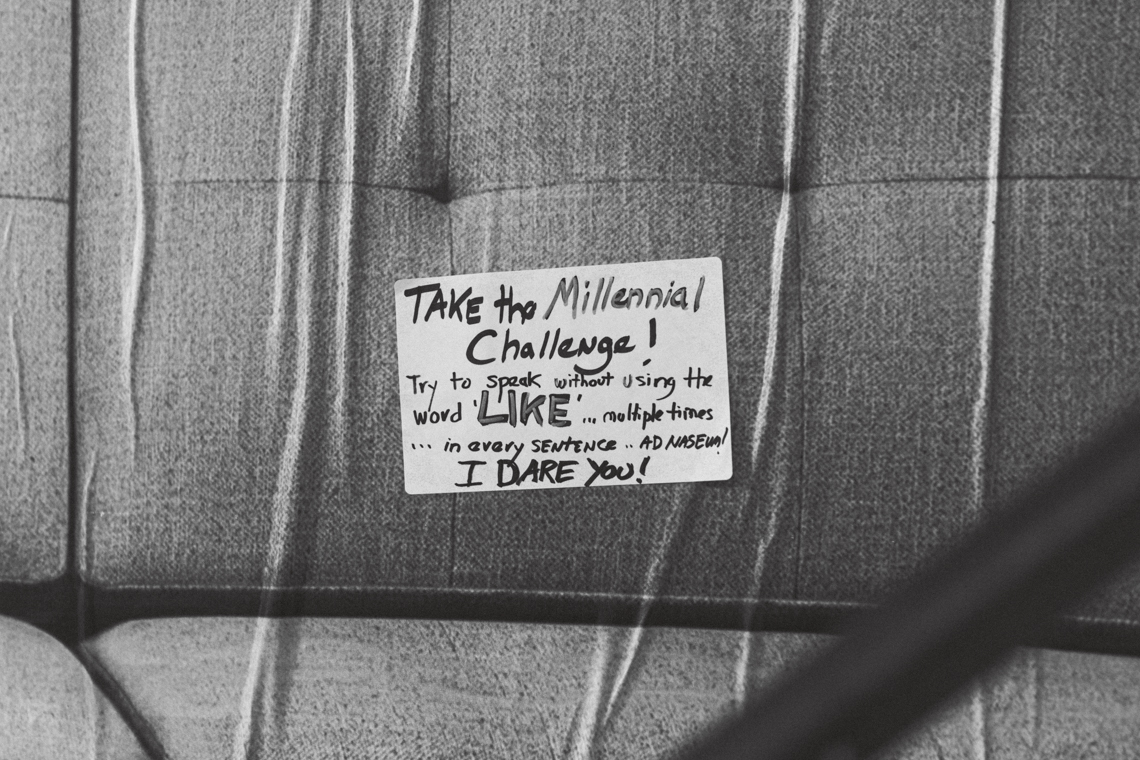 TAKE the Millennial
Challenge!
Try to speak without using the
word 'LIKE'... multiple times
... in every SENTENCE .. AD NASEUM!
I DARE YOU!